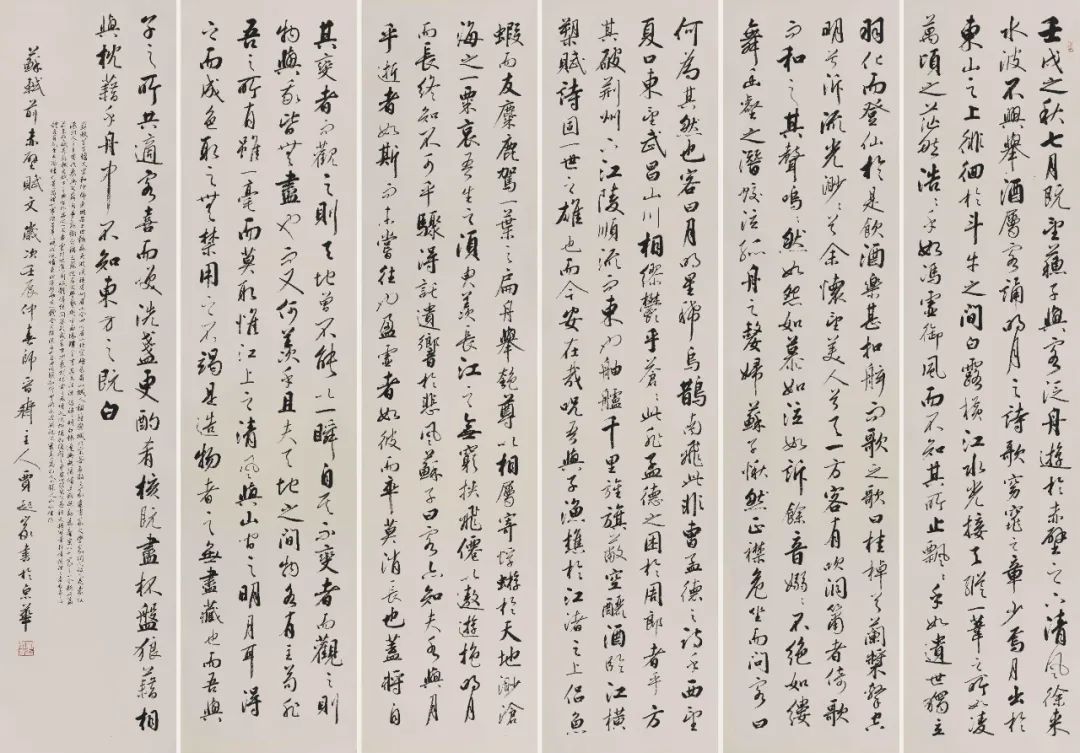 壬戌之秋七月既望蘇子與客泛舟遊於赤壁之下清風徐來
水波不興舉酒屬客誦明月之詩歌窈窕之章少焉月出於
東山之上徘徊於斗牛之間白露橫江水光接天縱一葦之所如凌
萬頃之茫然浩浩乎如馮虛御風而不知其所止飄飄乎如遺世獨立
羽化而登仙於是飲酒樂甚扣舷而歌之歌曰桂棹兮蘭槳擊空
明兮泝流光渺渺兮余懷望美人兮天一方客有吹洞簫者倚歌
而和之其聲嗚嗚然如怨如慕如泣如訴餘音嫋嫋不絕如縷
舞幽壑之潛蛟泣孤舟之嫠婦蘇子愀然正襟危坐而問客曰
何為其然也客曰月明星稀烏鵲南飛此非曹孟德之詩乎西望
夏口東望武昌山川相繆鬱乎蒼蒼此非孟德之困於周郎者乎方
其破荊州下江陵順流而東也舳艫千里旌旗蔽空釃酒臨江橫
槊賦詩固一世之雄也而今安在哉況吾與子漁樵於江渚之上侶魚
蝦而友麋鹿駕一葉之扁舟舉匏尊以相屬寄蜉蝣於天地渺滄
海之一粟哀吾生之須臾羨長江之無窮挾飛僊以遨遊抱明月
而長終知不可乎驟得託遺響於悲風蘇子曰客亦知夫水與月
乎逝者如斯而未嘗往也盈虛者如彼而卒莫消長也蓋將自
其變者而觀之則天地曾不能以一瞬自其不變者而觀之則
物與我皆無盡也而又何羨乎且夫天地之間物各有主苟非
吾之所有雖一毫而莫取惟江上之清風與山間之明月耳得
之而成色取之無禁用之不竭是造物者之無盡藏也而吾與
子之所共適客喜而笑洗盞更酌肴核既盡杯盤狼藉相
與枕藉乎舟中不知東方之既白
蘇軾前赤壁賦文歲次壬辰仲春師晉齋主人賈起家書於京華